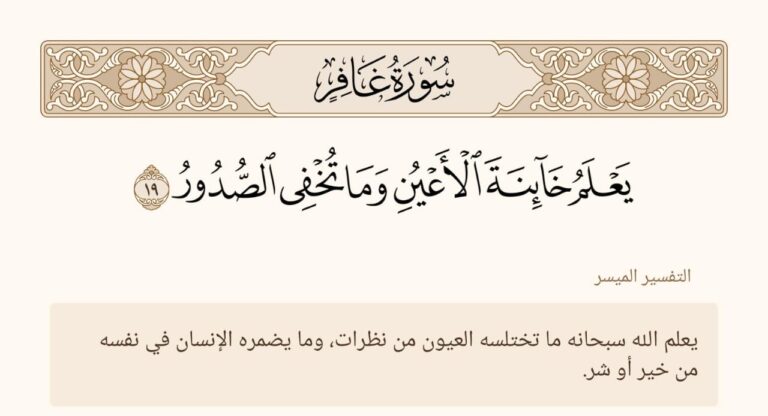 سُورَةُ غَافِرٍ
يَعۡلَمُ خَآئِنَةَ ٱلۡأَعۡيُنِ وَمَا تُخۡفِي ٱلصُّدُورُ ١٩
التفسير الميسر
يعلم الله سبحانه ما تختلسه العيون من نظرات، وما يضمره الإنسان في نفسه
من خير أو شر.